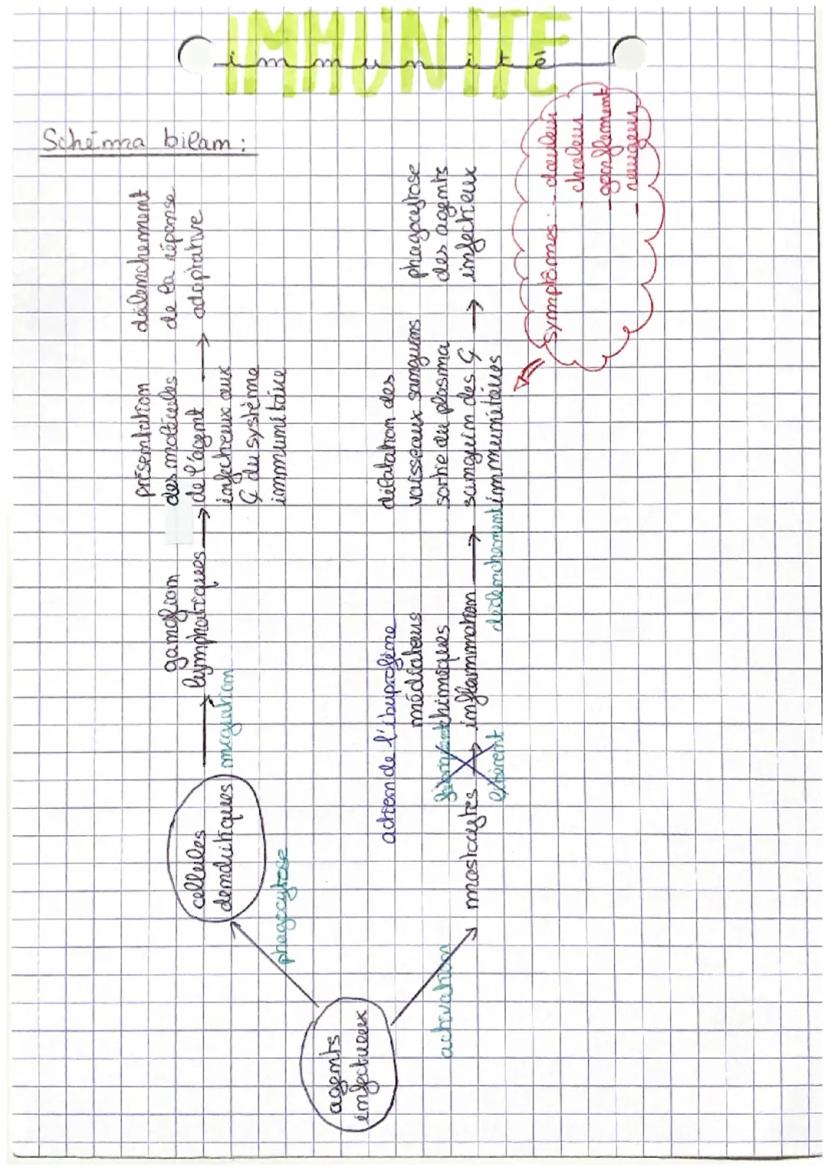 IMMUNITE
immunité
Schéma bilan :
agents
infectieux
phagocytose
cellules
dendritiques
migration
ganglion
lymphatiques
présentation
des molécules
de l'agent
infectieux aux
Ç du système
immunitaire
déclenchement
de la réponse
adaptative
activation
mastocytes
action de l'ibuprofène
médiateurs
chimiques
libèrent
inflammation
déclenchement
dilatation des
vaisseaux sanguins
sortie du plasma
sanguin des Ç
immunitaires
phagocytose
des agents
infectieux
symptômes : - douleur
- chaleur
- gonflement
- rougeur